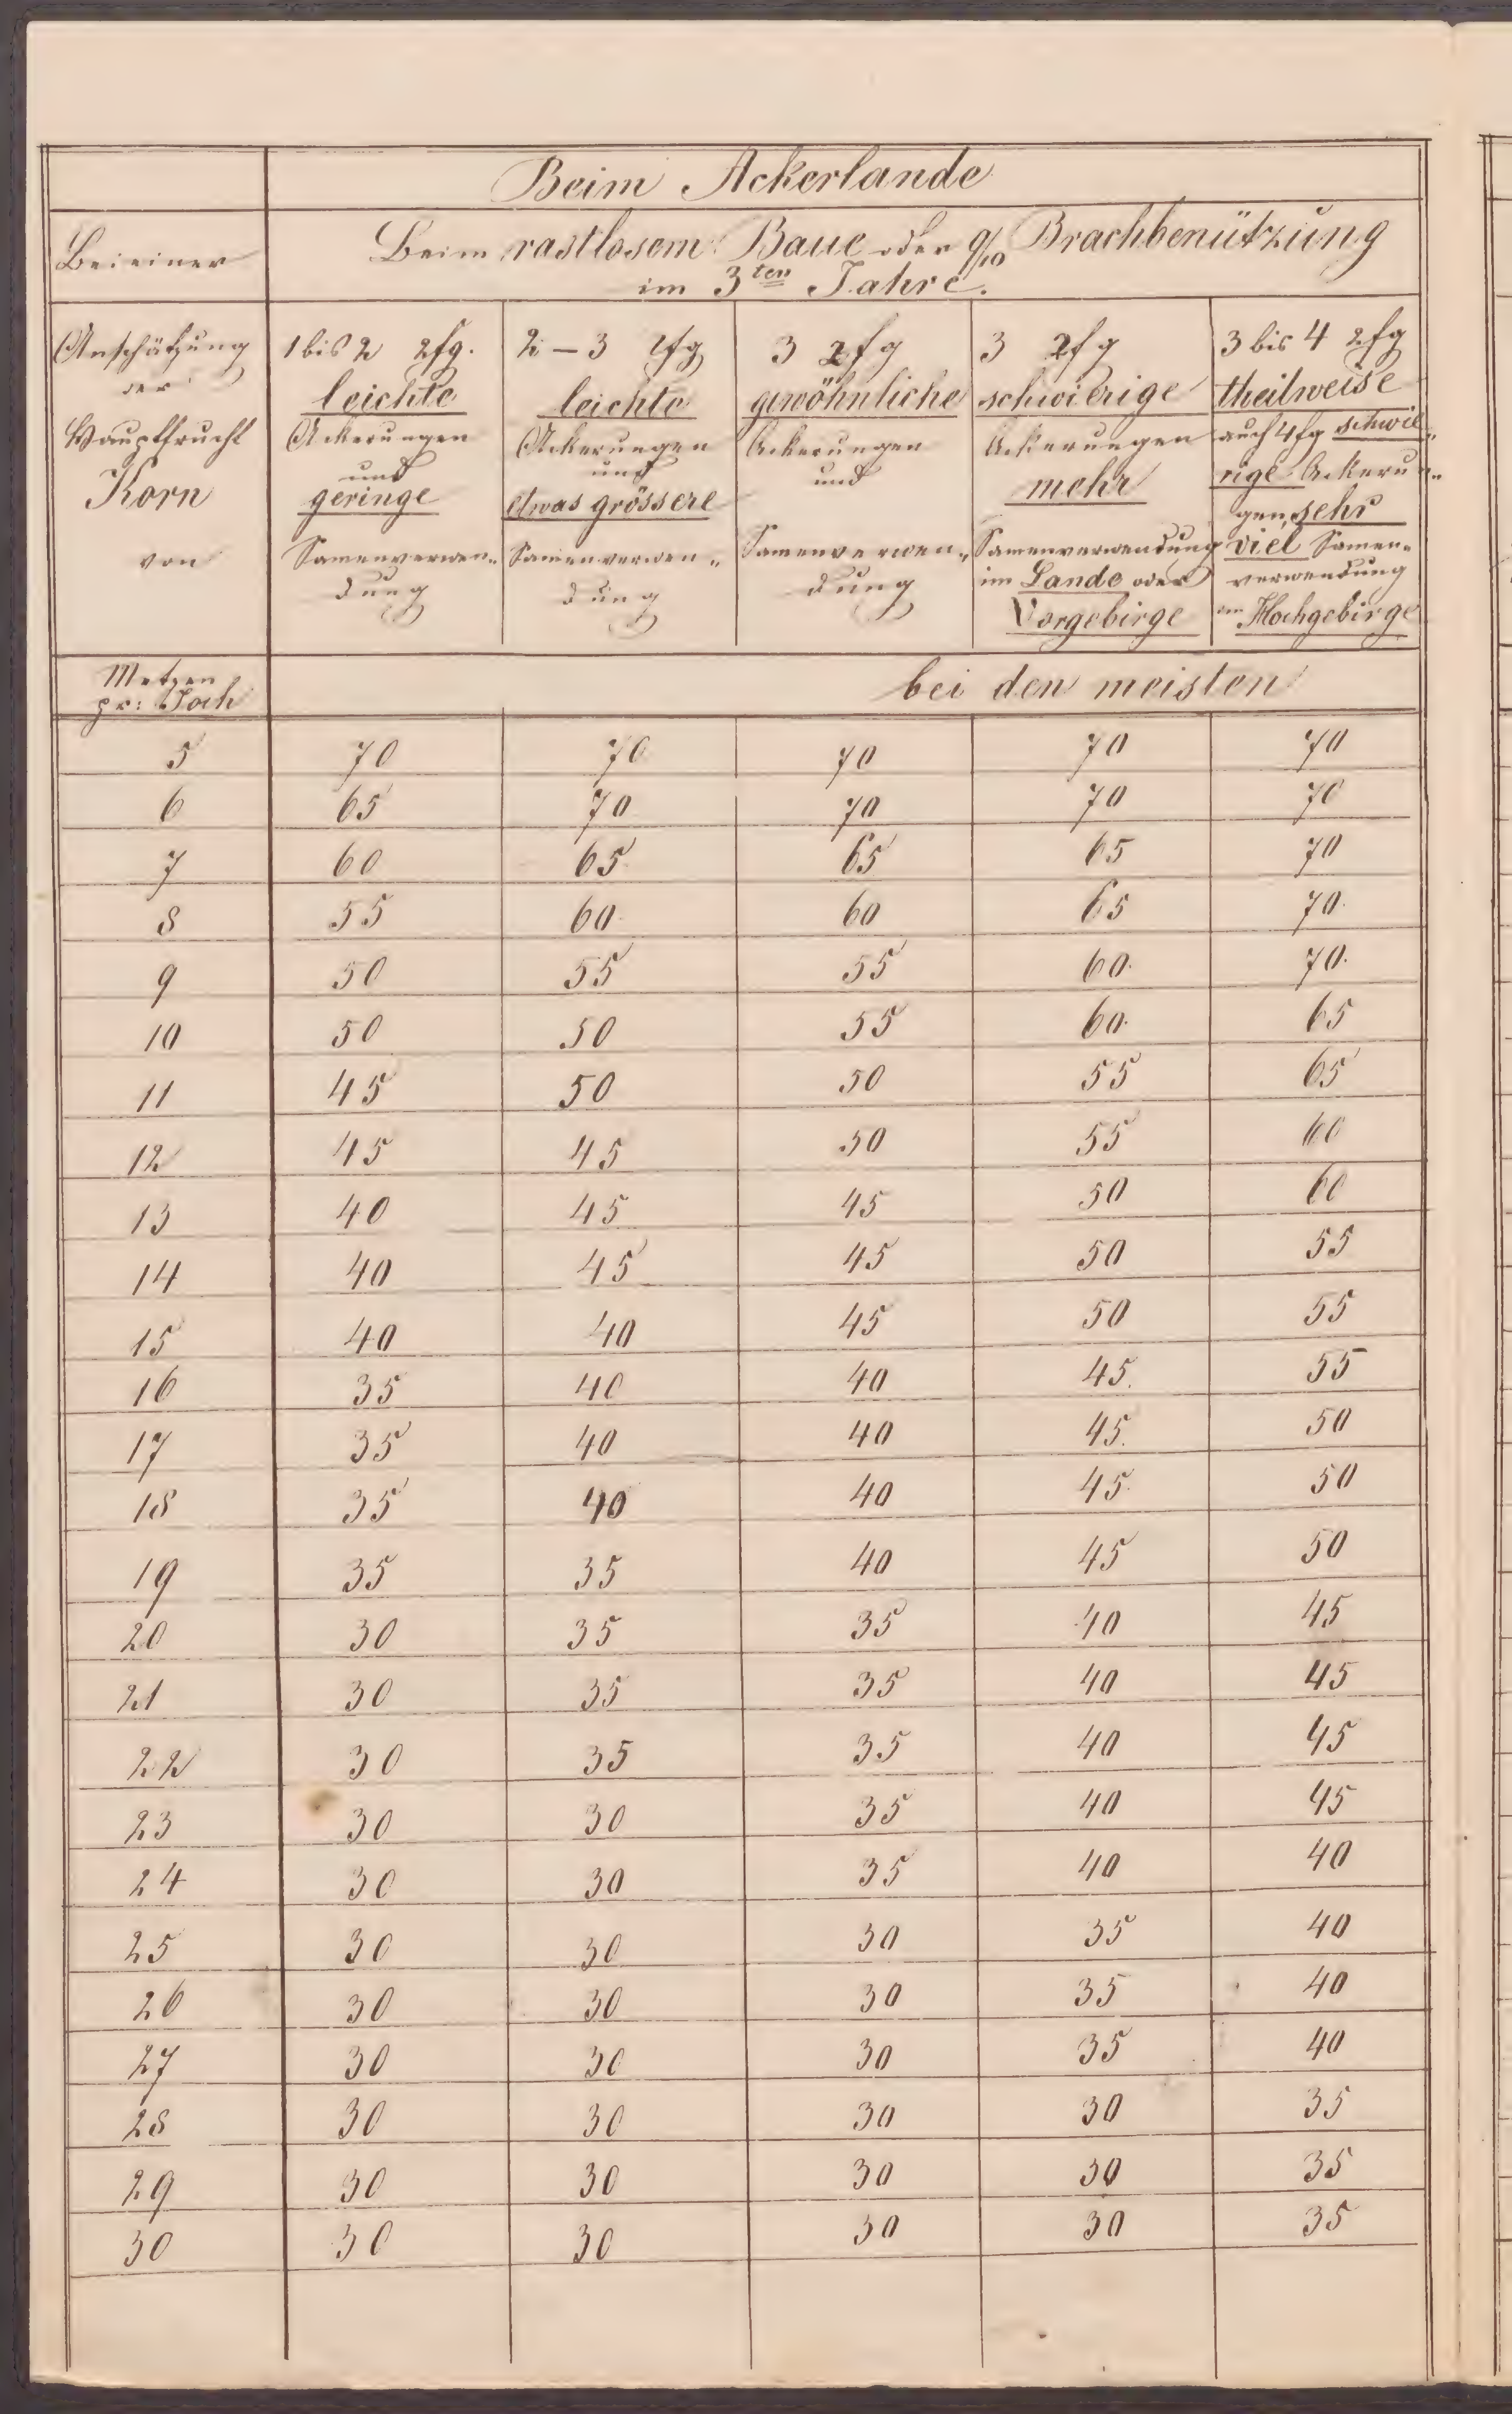 Beim Ackerlande
Beim rastlosem Baue oder 9/10 Brachbenützung
im 3ten Jahre.
Bei einer
Anschätzung
der
Hauptfrucht
Korn
von
1 bis 2 2fg.
leichte
Ackerungen
und
geringe
Samenverwen„
dung
2 – 3 2fg
leichte
Ackerungen
und
etwas grössere
Samenverwen„
dung
3 2fg
gewöhnliche
Ackerungen
und
Samenverwen„
dung
3 2fg
schwierige
Ackerungen
mehr
Samenverwendung
im Lande oder
Vorgebirge
3 bis 4 2fg
theilweise
auch 4fg schwie„
rige Ackerun„
gen, sehr
viel Samen„
verwendung
im Hochgebirge
Metzen
pr: Joch
bei den meisten
5 70 70 70 70 70
6 65 70 70 70 70
7 60 65 65 65 70
8 55 60 60 65 70
9 50 55 55 60 70
10 50 50 55 60 65
11 45 50 50 55 65
12 45 45 50 55 60
13 40 45 45 50 60
14 40 45 45 50 55
15 40 40 45 50 55
16 35 40 40 45 55
17 35 40 40 45 50
18 35 40 40 45 50
19 35 35 40 45 50
20 30 35 35 40 45
21 30 35 35 40 45
22 30 35 35 40 45
23 30 30 35 40 45
24 30 30 35 40 40
25 30 30 30 35 40
26 30 30 30 35 40
27 30 30 30 35 40
28 30 30 30 30 35
29 30 30 30 30 35
30 30 30 30 30 35